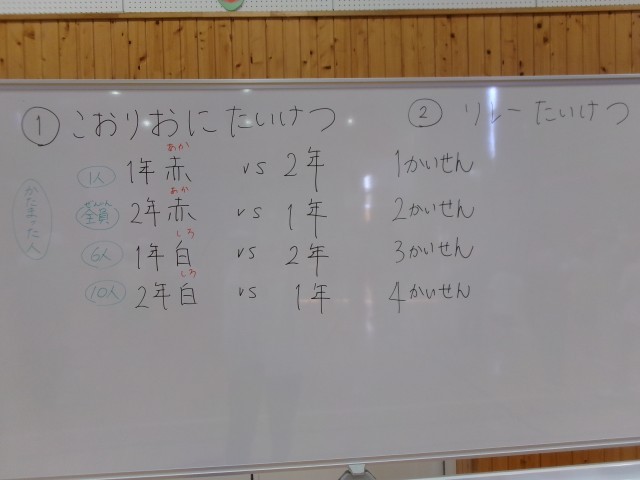 ① こおりおにたいけつ ② リレーたいけつ
かたまった人
あか
1人 1年赤 vs 2年 1かいせん
あか
ぜんいん
全員 2年赤 vs 1年 2かいせん
しろ
6人 1年白 vs 2年 3かいせん
しろ
10人 2年白 vs 1年 4かいせん